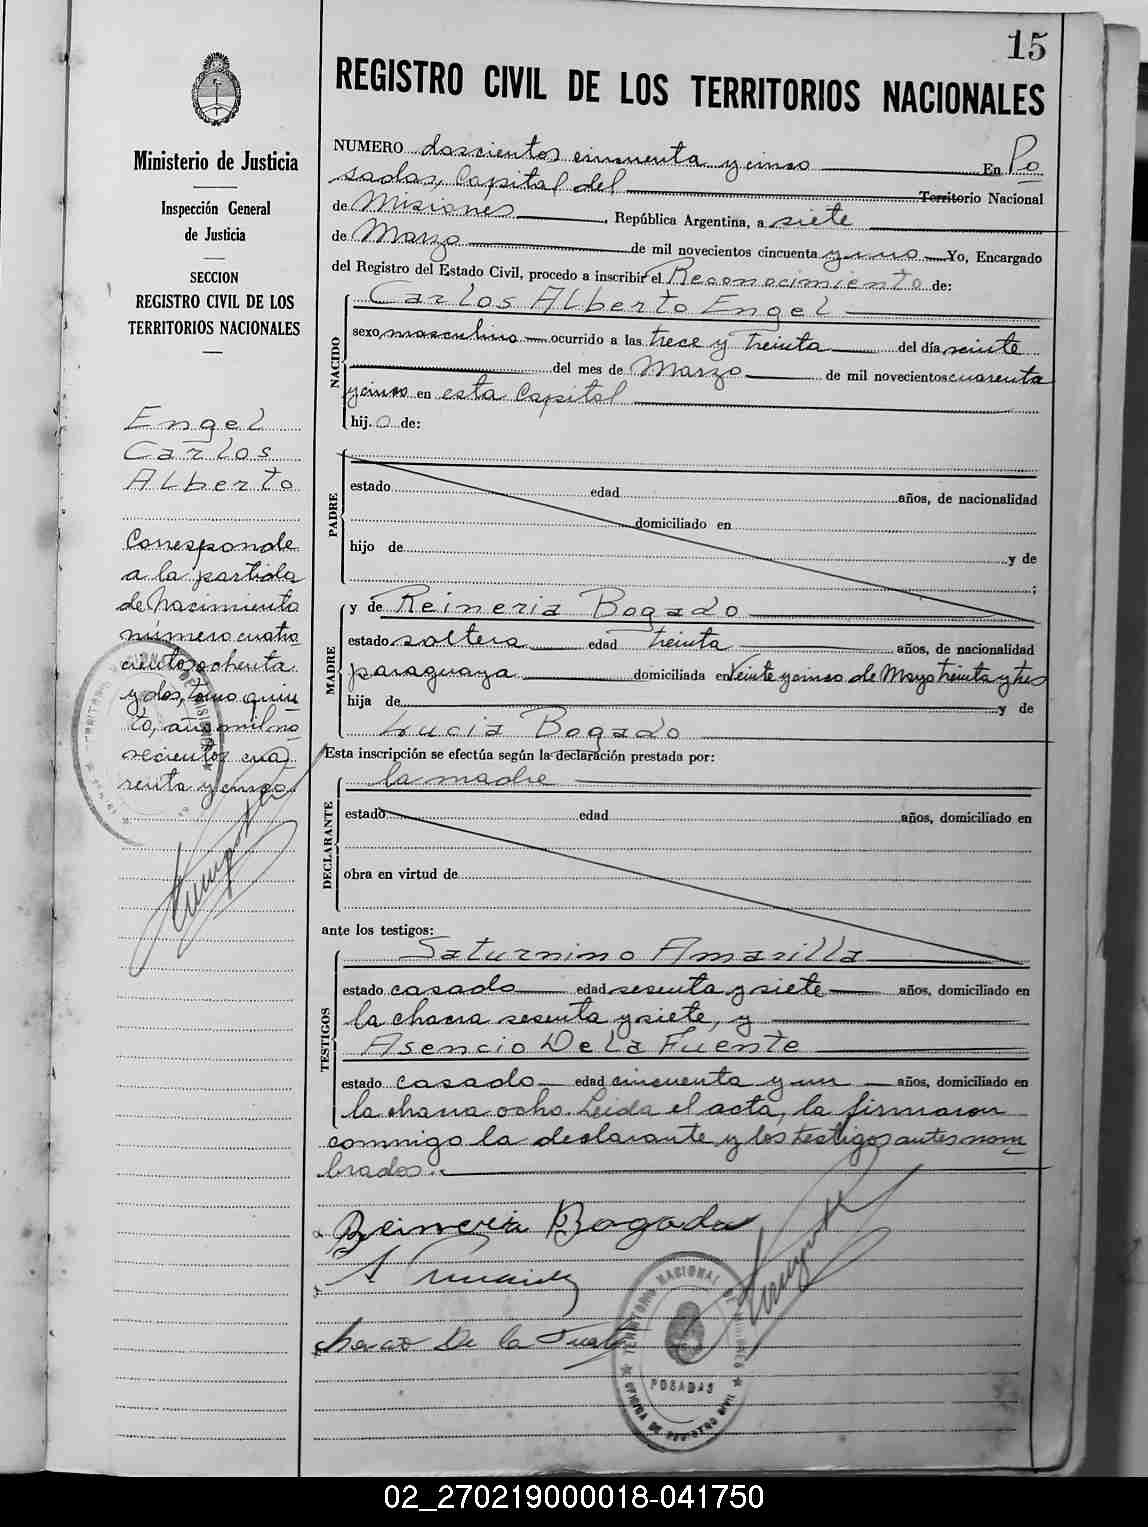 15
REGISTRO CIVIL DE LOS TERRITORIOS NACIONALES
Ministerio de Justicia
Inspección General
de Justicia
SECCION
REGISTRO CIVIL DE LOS
TERRITORIOS NACIONALES
Engel
Carlos
Alberto
Corresponde
a la partida
de Nacimiento
número cuatro
cientos ochenta
y dos, tomo quin
to, año mil no
vecientos cua
renta y cinco.
NUMERO doscientos cincuenta y cinco En Po
sadas, Capital del Territorio Nacional
de Misiones, República Argentina, a siete
de Marzo de mil novecientos cincuenta y uno Yo, Encargado
del Registro del Estado Civil, procedo a inscribir el Reconocimiento de:
Carlos Alberto Engel
NACIDO
sexo masculino ocurrido a las trece y treinta del día veinte
del mes de Marzo de mil novecientos cuarenta
y cinco en esta Capital
hijo de:
PADRE
estado edad años, de nacionalidad
domiciliado en
hijo de y de
;
MADRE
y de Reineria Bogado
estado soltera edad treinta años, de nacionalidad
paraguaya domiciliada en Veinte y cinco de Mayo treinta y tres
hija de y de
Lucia Bogado
Esta inscripción se efectúa según la declaración prestada por:
la madre
DECLARANTE
estado edad años, domiciliado en
obra en virtud de
ante los testigos:
TESTIGOS
Saturnino Amarilla
estado casado edad sesenta y siete años, domiciliado en
la chacra sesenta y siete, y
Asencio De La Fuente
estado casado edad cincuenta y un años, domiciliado en
la chacra ocho. Leida el acta, la firmaron
conmigo la declarante y los testigos antes nom
brados.
Reineria Bogado
De la Fuente
TERRITORIO NACIONAL DE MISIONES
POSADAS
OFICINA DE REGISTRO CIVIL
02_270219000018-041750